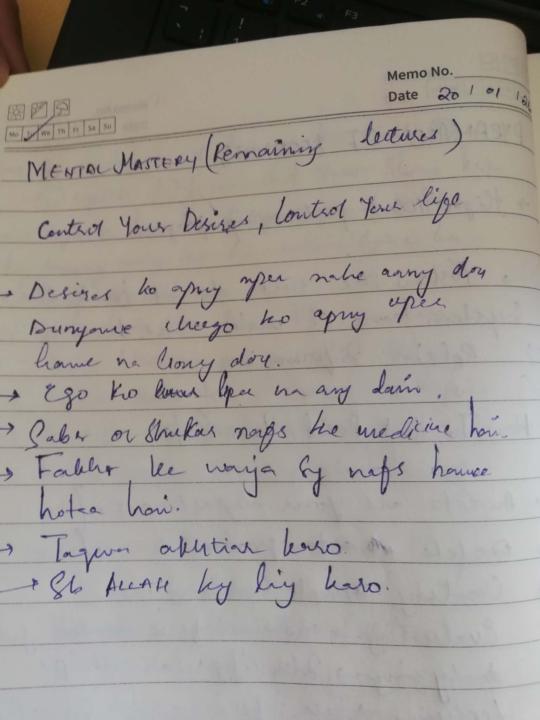 Memo No.
Date 20 / 01 /
Mo Tu We Th Fr Sa Su
MENTAL MASTERY (Remaining lectures)
Control Your Desires, Control Your life
→ Desires ko apny uper nahe anny dou.
Dunyawe cheezo ko apny uper
hawe na hony dou.
→ Ego ko uper na any dain.
→ Saber or Shukar nafs ke medicine hai.
→ Fakhr ke waja sy nafs hawee
hotea hai.
→ Taqwa akhtiar karo.
→ Sb ALLAH ky liy karo.